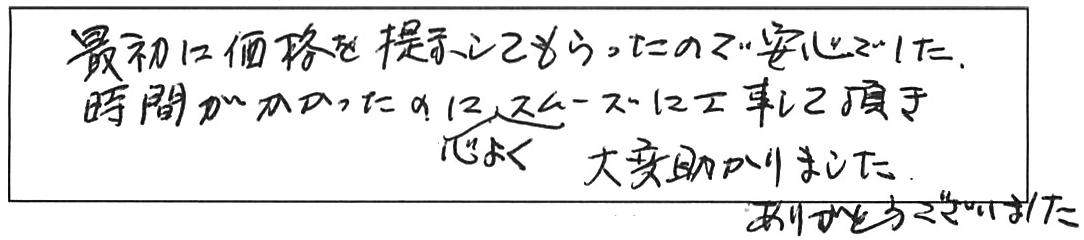 最初に価格を提示してもらったので安心でした.
時間がかかったのに、スムーズに工事して頂き
心よく
大変助かりました.
ありがとうございました